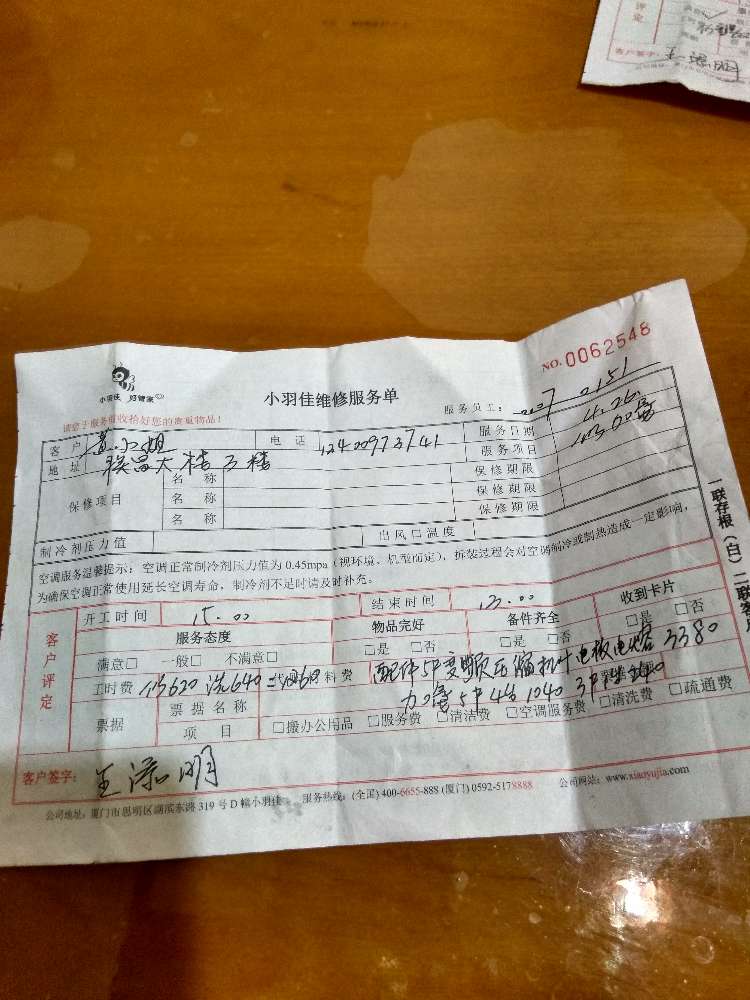 客户签字：王添明
NO.0062548
小羽佳 好管家
小羽佳维修服务单
服务员工：
请您于服务前收拾好您的贵重物品！
客户 黄小姐 电话 13400973741 服务日期 4.26.
地址 联昌大楼三楼 服务项目
保修项目 名称 保修期限
名称 保修期限
名称 保修期限
制冷剂压力值 出风口温度
空调服务温馨提示：空调正常制冷剂压力值为0.45mpa（视环境、机型而定），拆装过程会对空调制冷或制热造成一定影响，
为确保空调正常使用延长空调寿命，制冷剂不足时请及时补充。
客户评定
开工时间 15.00 结束时间
服务态度 物品完好 备件齐全 收到卡片
满意□ 一般□ 不满意□ □是 □否 □是 □否 □是 □否
工时费 修620 洗640 料费 配件5P变频压缩机 电板电熔 3380
5P 4台 1040 3P
票据 票据名称
项目 □搬办公用品 □服务费 □清洁费 □空调服务费 □清洗费 □疏通费
客户签字： 王添明
公司地址：厦门市思明区湖滨东路319号D幢小羽佳 服务热线：(全国)400-6655-888 (厦门)0592-5178888 公司网站：www.xiaoyujia.com
一联存根（白）二联客户